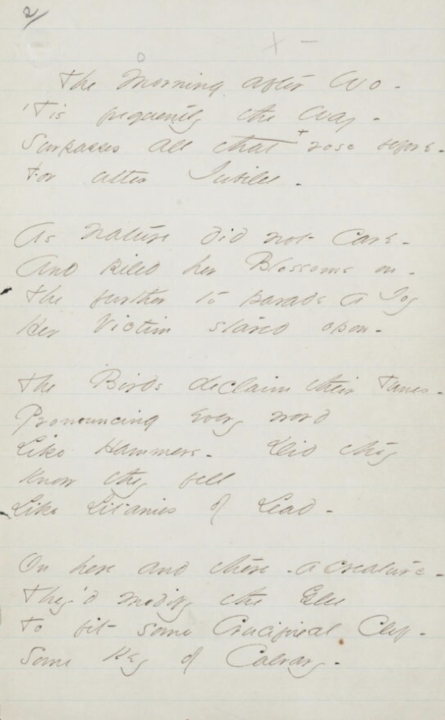 2/
o x -
The Morning after Wo -
'Tis frequently the Way -
Surpasses all that + rose before -
For utter Jubilee -
As Nature did not Care -
And piled her Blossoms on -
The further to parade a Joy
Her Victim stared opon -
The Birds declaim their Tunes -
Pronouncing every word
Like Hammers - Did they
know they fell
Like Litanies of Lead -
On here and there - a creature -
They'd modify the Glee
To fit some Crucifixal Clef -
Some key of Calvary -